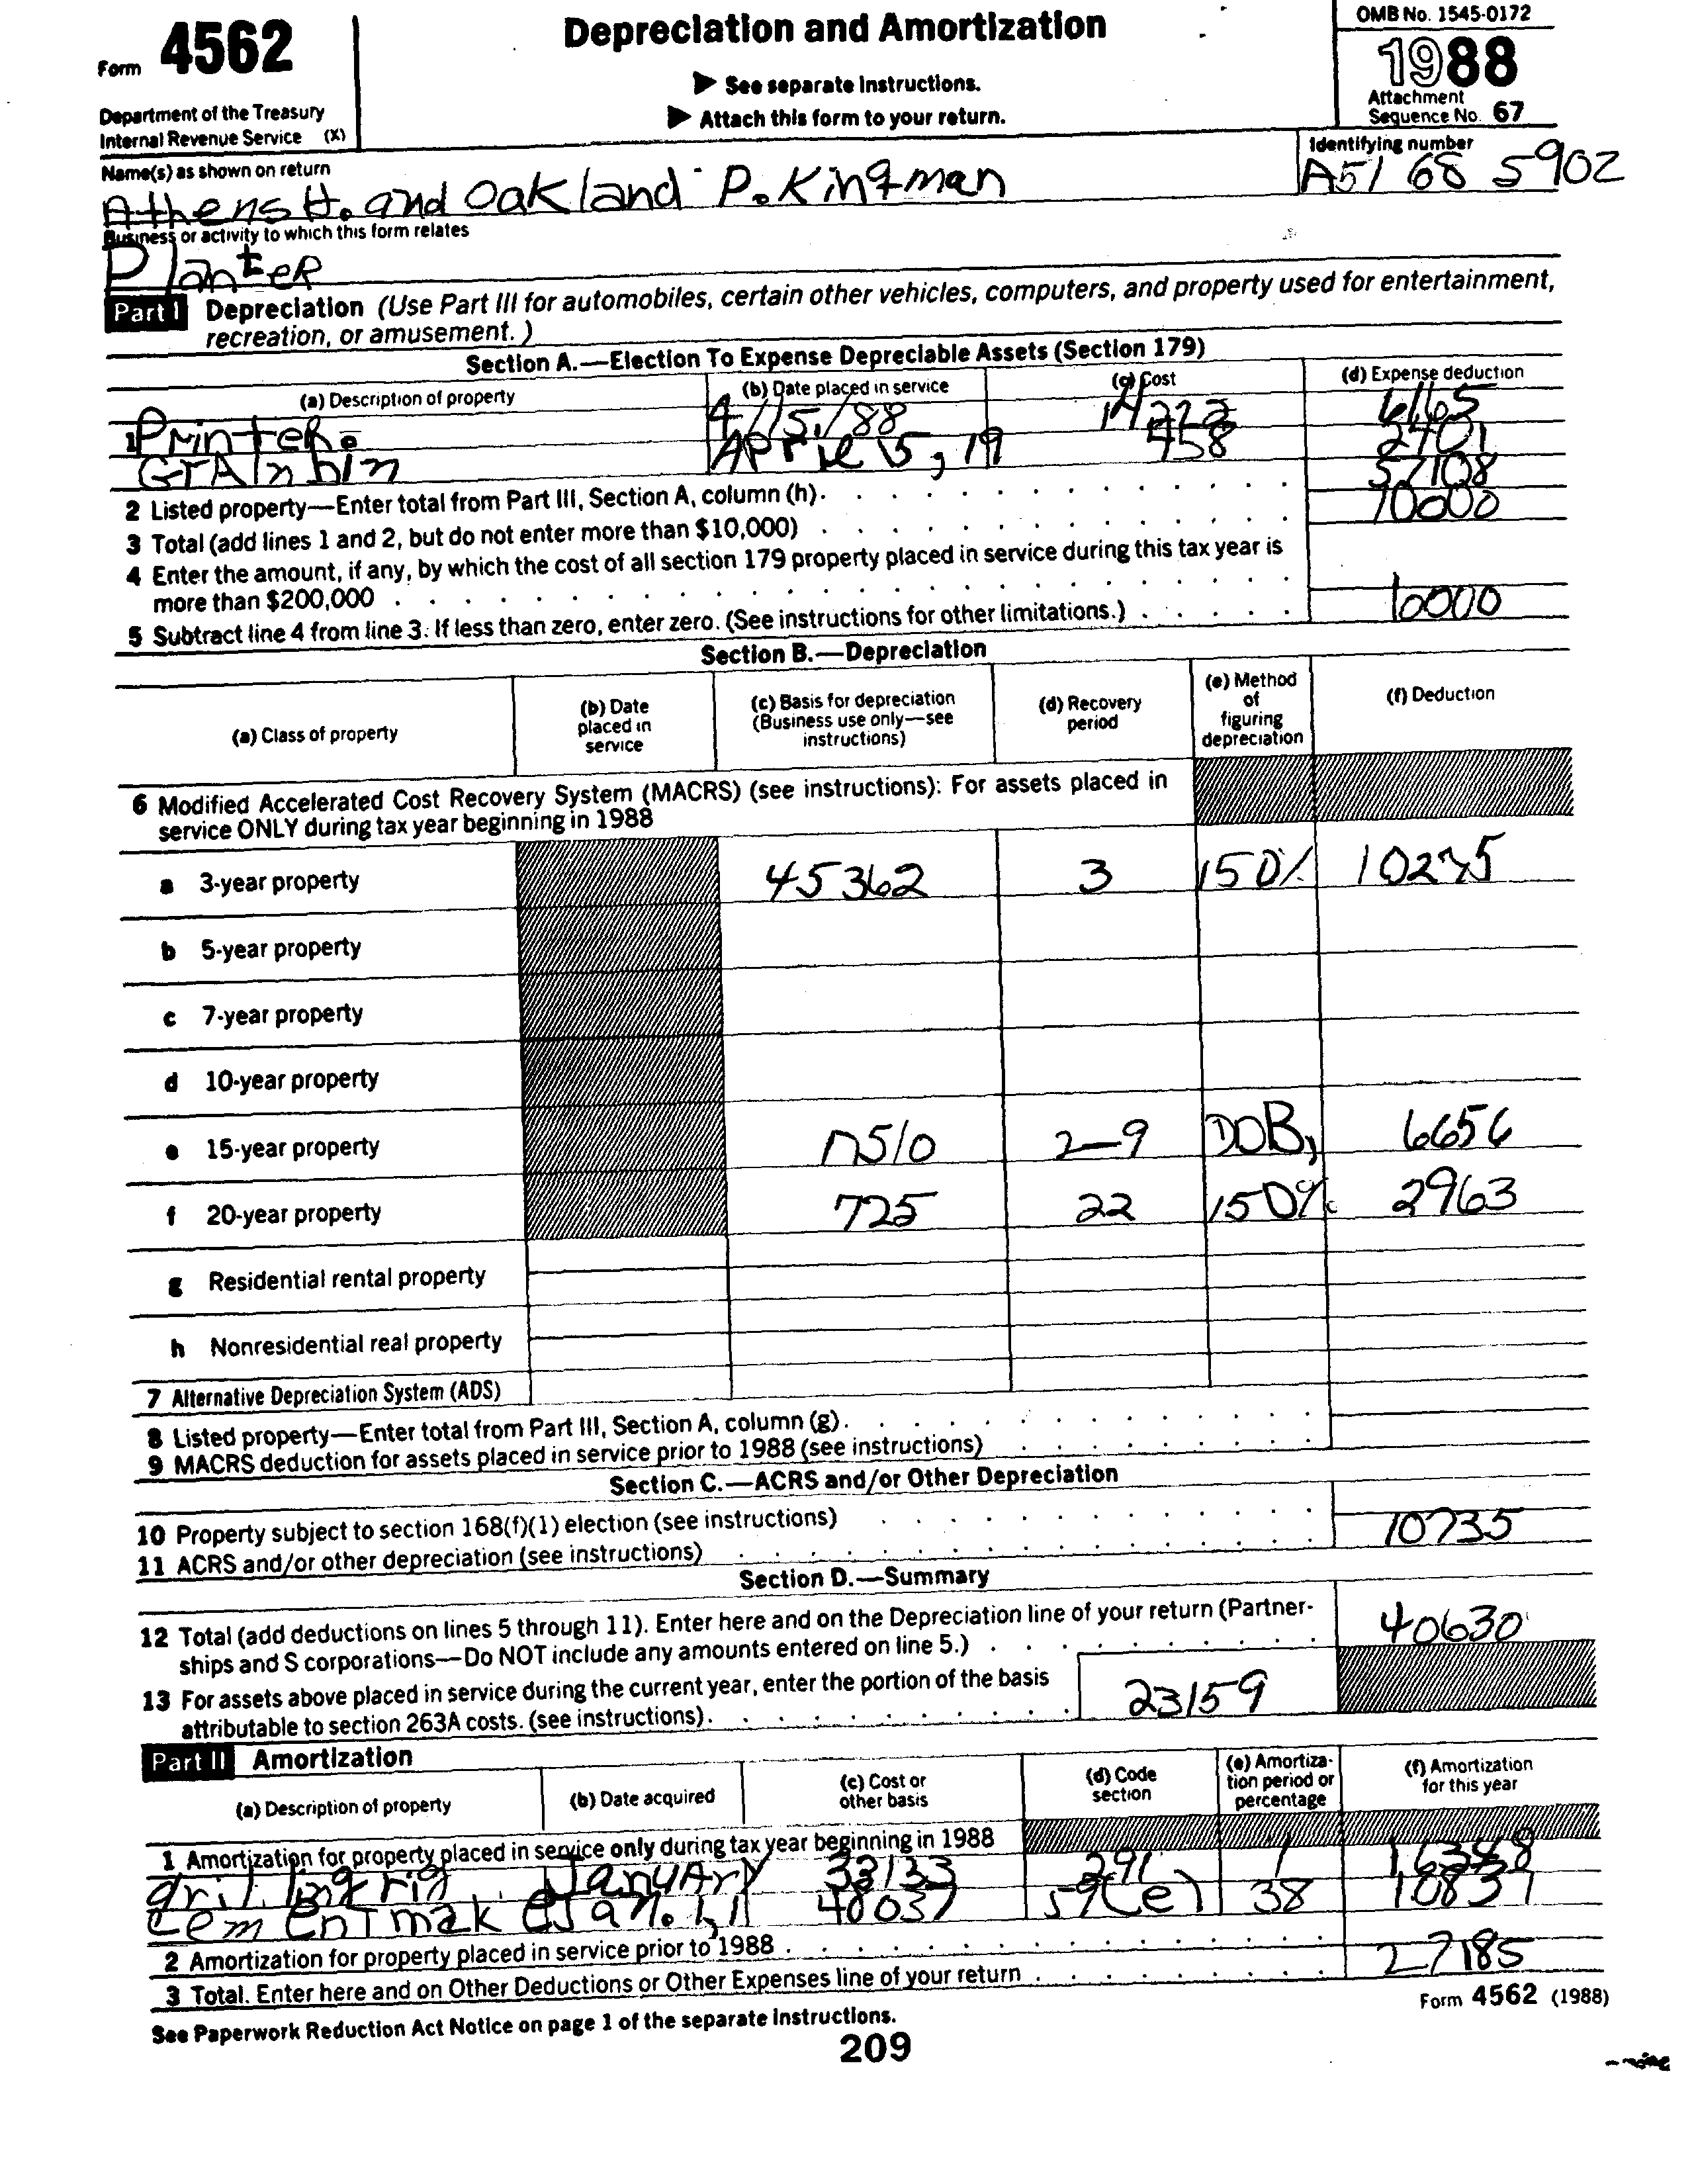 Form 4562
Department of the Treasury
Internal Revenue Service (X)
Depreciation and Amortization
▶ See separate Instructions.
▶ Attach this form to your return.
OMB No. 1545-0172
1988
Attachment
Sequence No. 67
Name(s) as shown on return
Athens H. and Oakland P. Kingman
Identifying number
A51 68 5902
Business or activity to which this form relates
Planter
Part I Depreciation (Use Part III for automobiles, certain other vehicles, computers, and property used for entertainment,
recreation, or amusement.)
Section A.—Election To Expense Depreciable Assets (Section 179)
(a) Description of property (b) Date placed in service (c) Cost (d) Expense deduction
1 Printer. 4/15/88 14212 6165
GrAIn bin 458 2401
2 Listed property—Enter total from Part III, Section A, column (h). 57108
3 Total (add lines 1 and 2, but do not enter more than $10,000) 10000
4 Enter the amount, if any, by which the cost of all section 179 property placed in service during this tax year is
more than $200,000
5 Subtract line 4 from line 3. If less than zero, enter zero. (See instructions for other limitations.) 10000
Section B.—Depreciation
(a) Class of property
(b) Date
placed in
service
(c) Basis for depreciation
(Business use only—see
instructions)
(d) Recovery
period
(e) Method
of
figuring
depreciation
(f) Deduction
6 Modified Accelerated Cost Recovery System (MACRS) (see instructions): For assets placed in
service ONLY during tax year beginning in 1988
a 3-year property 45362 3 150% 10275
b 5-year property
c 7-year property
d 10-year property
e 15-year property 2-9 DOB, 6656
f 20-year property 725 22 150% 2963
g Residential rental property
h Nonresidential real property
7 Alternative Depreciation System (ADS)
8 Listed property—Enter total from Part III, Section A, column (g).
9 MACRS deduction for assets placed in service prior to 1988 (see instructions)
Section C.—ACRS and/or Other Depreciation
10 Property subject to section 168(f)(1) election (see instructions)
11 ACRS and/or other depreciation (see instructions) 10735
Section D.—Summary
12 Total (add deductions on lines 5 through 11). Enter here and on the Depreciation line of your return (Partner-
ships and S corporations—Do NOT include any amounts entered on line 5.) 40630
13 For assets above placed in service during the current year, enter the portion of the basis
attributable to section 263A costs. (see instructions). 23159
Part II Amortization
(a) Description of property
(b) Date acquired
(c) Cost or
other basis
(d) Code
section
(e) Amortiza-
tion period or
percentage
(f) Amortization
for this year
1 Amortization for property placed in service only during tax year beginning in 1988
drilling rig January 33133 291 1 16348
cement make Jan. 1, 1 48037 59(e) 38 10837
2 Amortization for property placed in service prior to 1988
3 Total. Enter here and on Other Deductions or Other Expenses line of your return 27185
See Paperwork Reduction Act Notice on page 1 of the separate Instructions.
Form 4562 (1988)
209